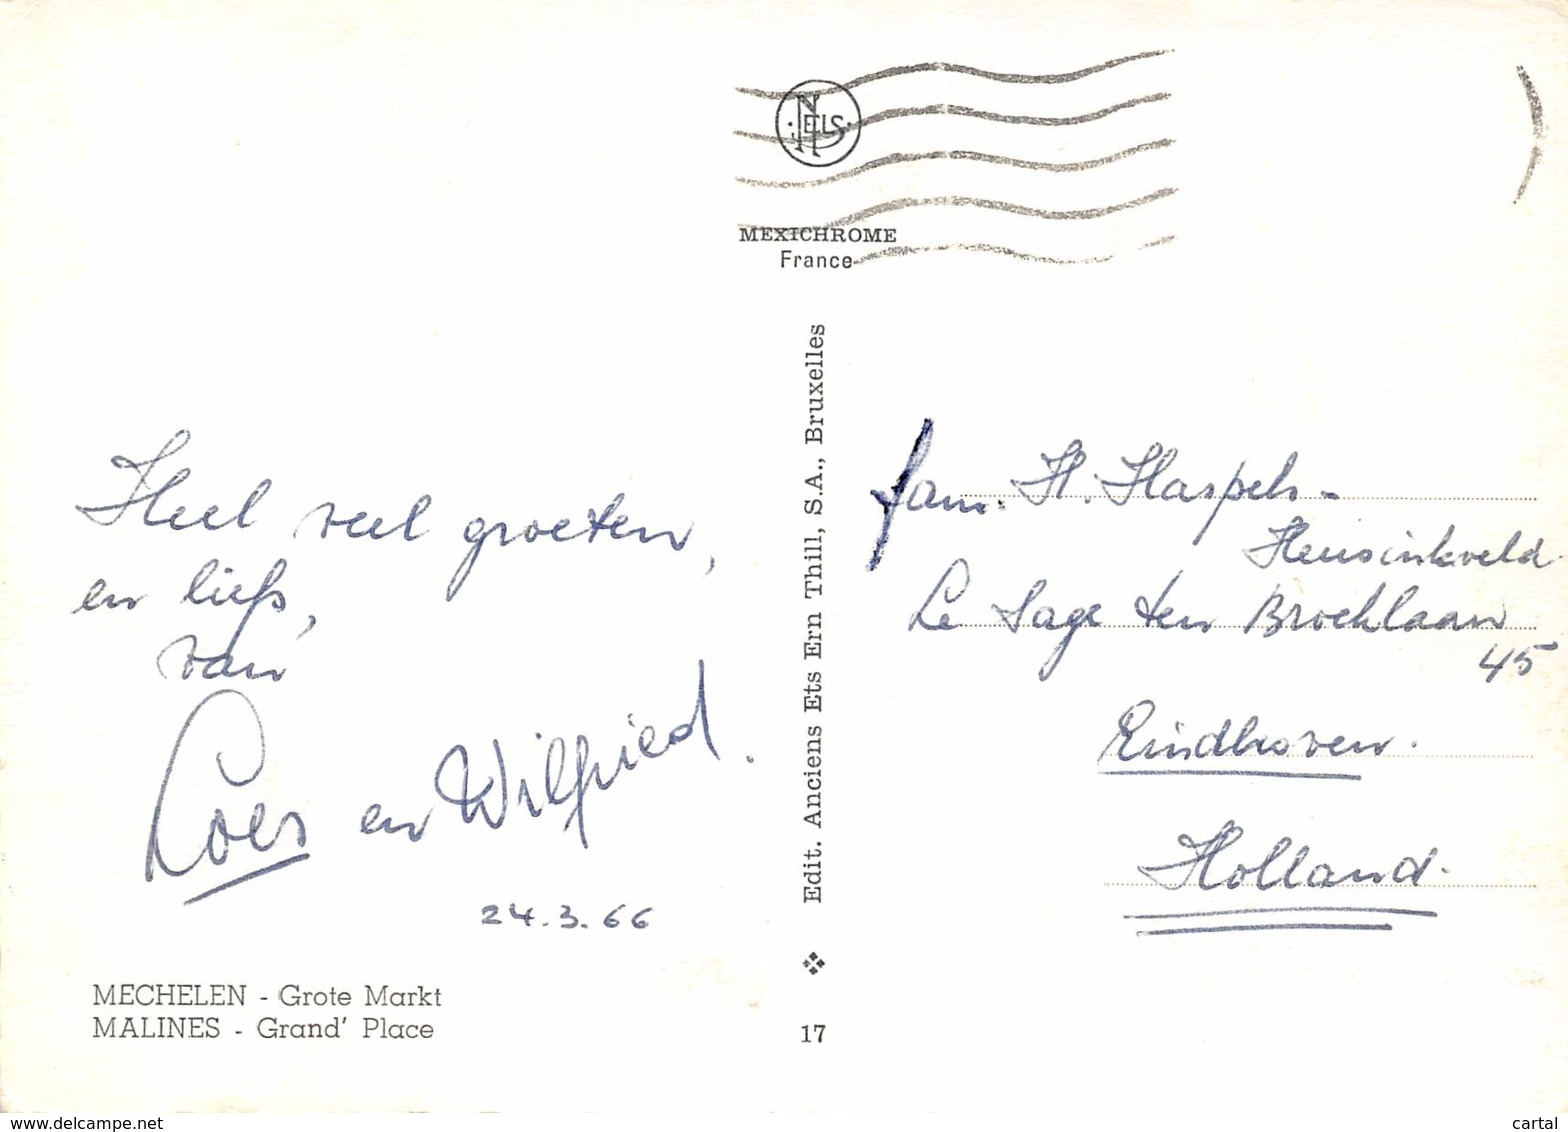 NELS
MEXICHROME
France
Edit. Anciens Ets Ern Thill, S.A., Bruxelles
17
Heel veel groeten,
en liefs,
van
Loes en Wilfried.
24.3.66
MECHELEN - Grote Markt
MALINES - Grand' Place
fam. H. Haspels-
Heusinkveld.
Le Sage ten Broeklaan
45
Eindhoven.
Holland.
www.delcampe.net
cartal